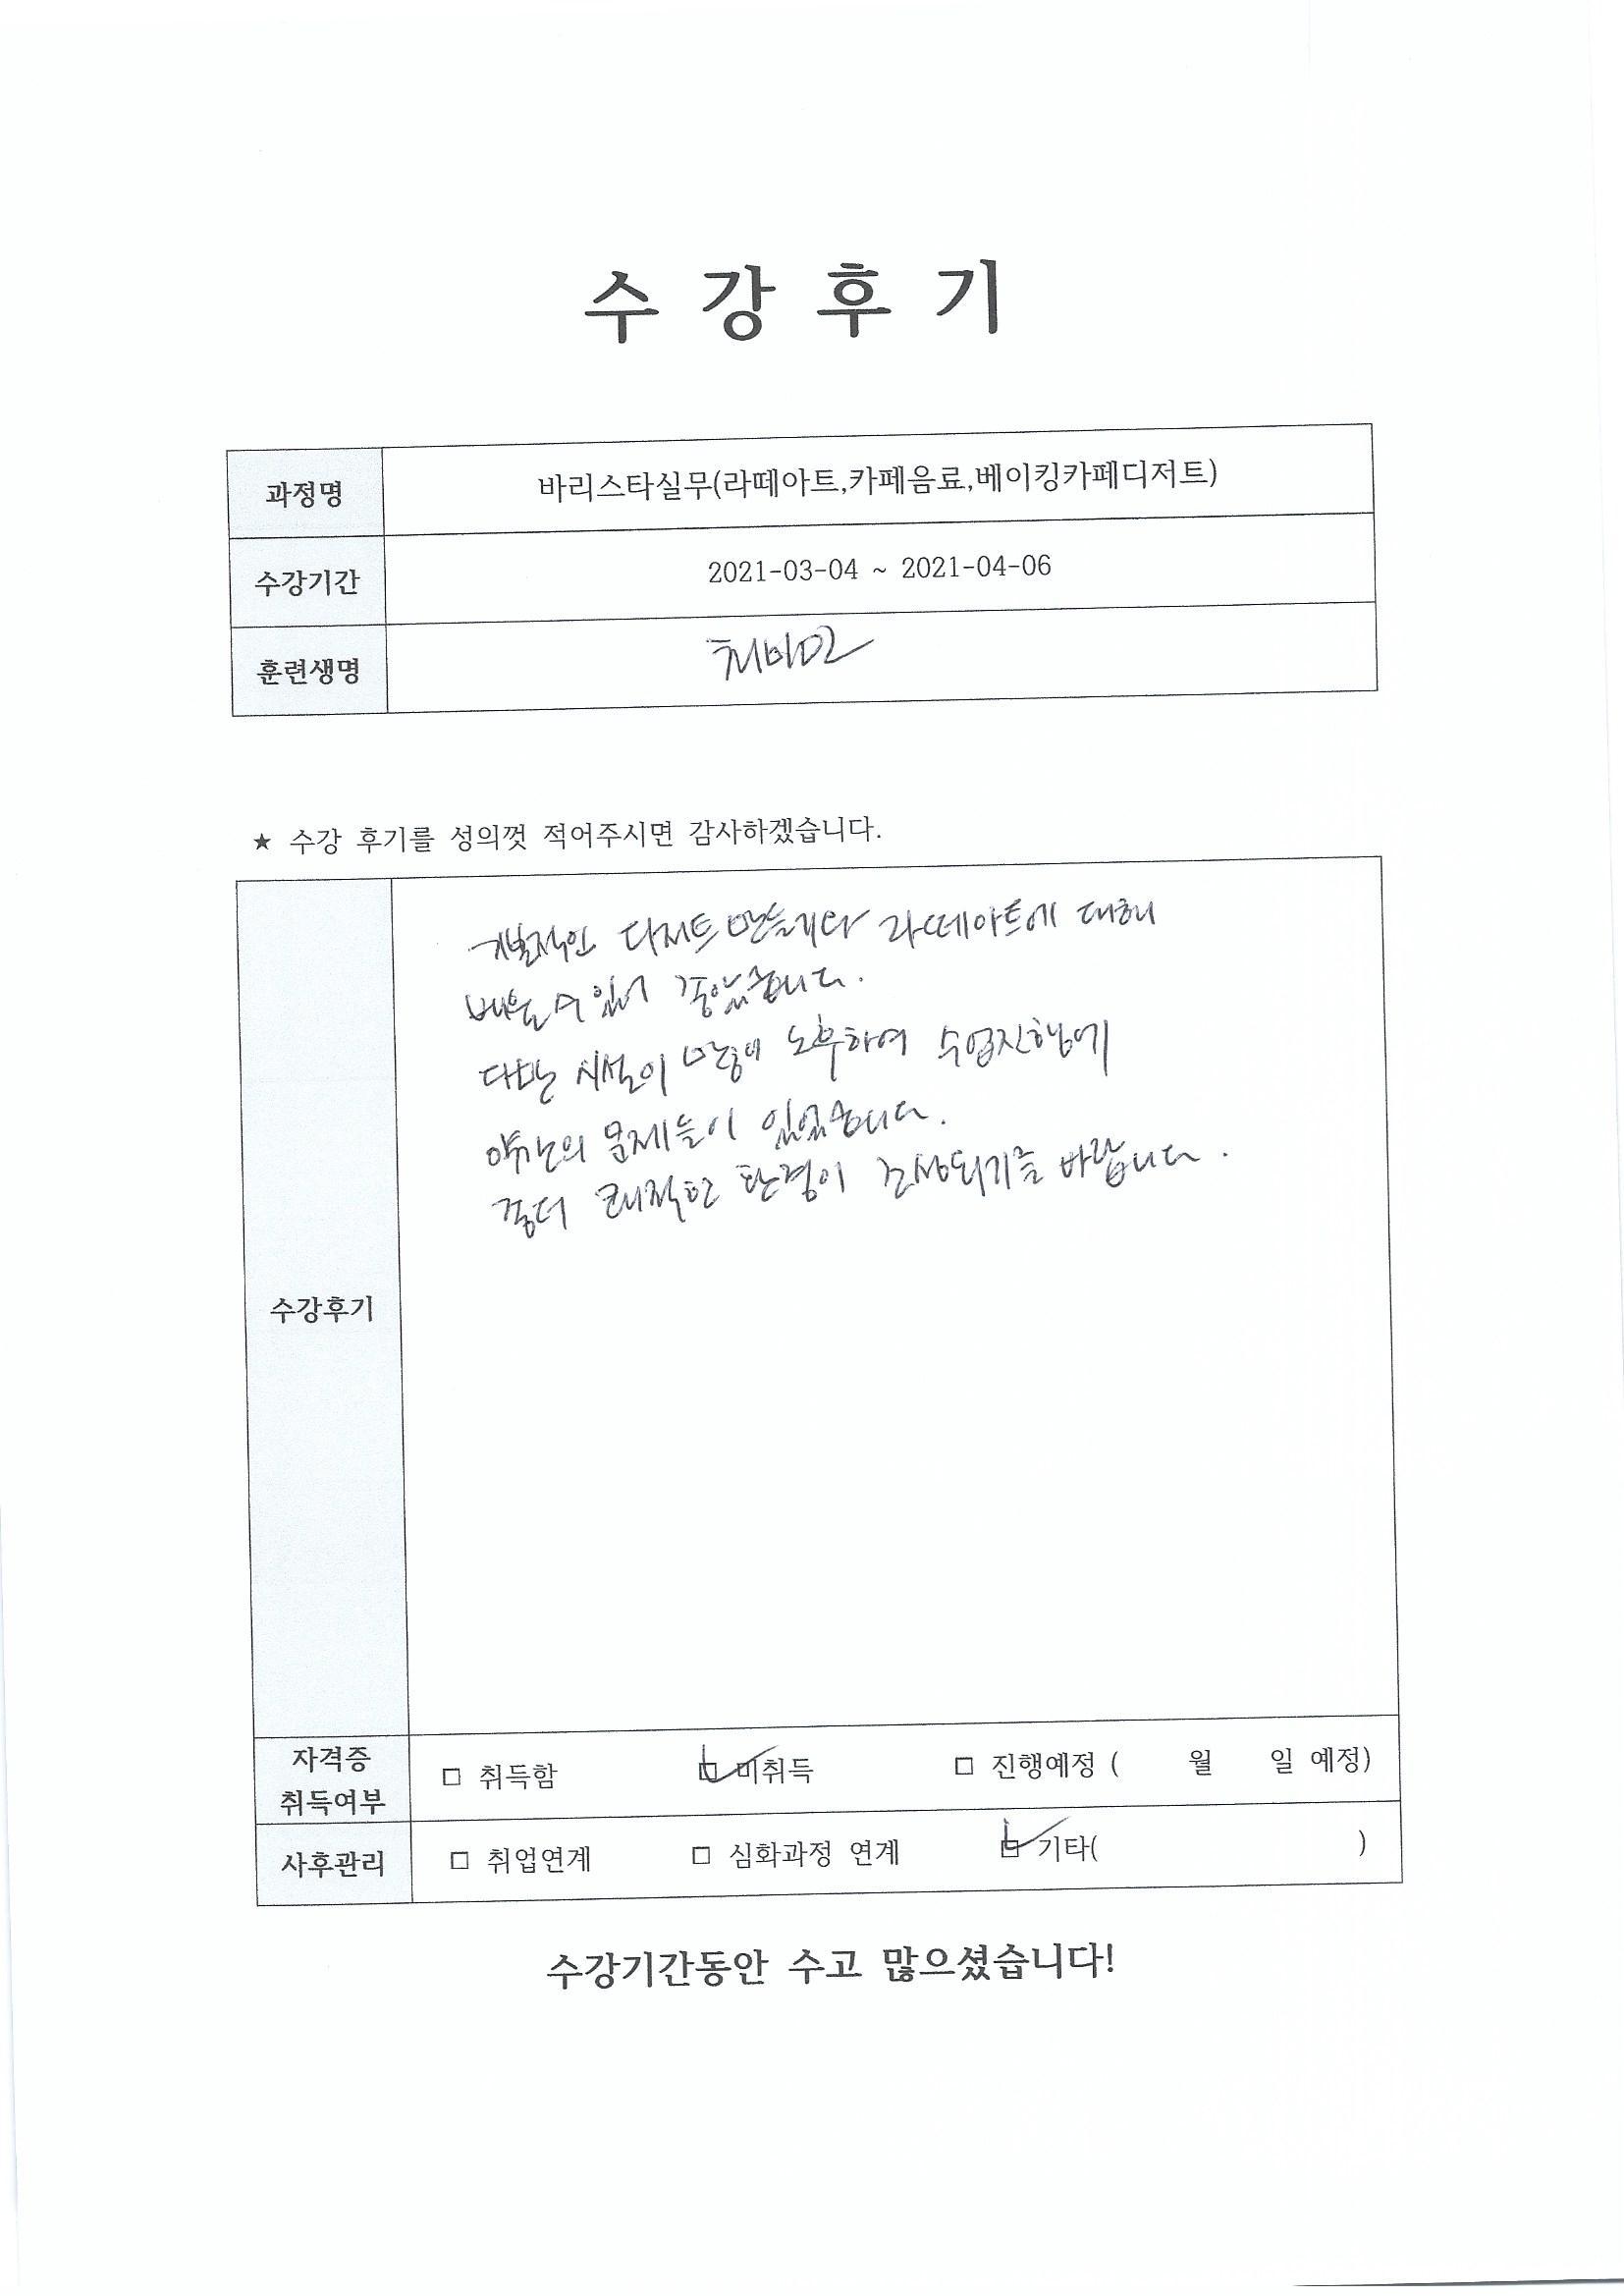 수강후기
과정명 바리스타실무(라떼아트,카페음료,베이킹카페디저트)
수강기간 2021-03-04 ~ 2021-04-06
훈련생명
★ 수강 후기를 성의껏 적어주시면 감사하겠습니다.
디저트 만들기와 라떼아트에 대해
배울 수 있어 좋았습니다.
다만 시설이 많이 노후하여 수업진행에
약간의 문제들이 있었습니다.
좀더 쾌적한 환경이 조성되기를 바랍니다.
수강후기
자격증 취득여부 □ 취득함 □ 미취득 □ 진행예정 ( 월 일 예정)
사후관리 □ 취업연계 □ 심화과정 연계 □ 기타( )
수강기간동안 수고 많으셨습니다!